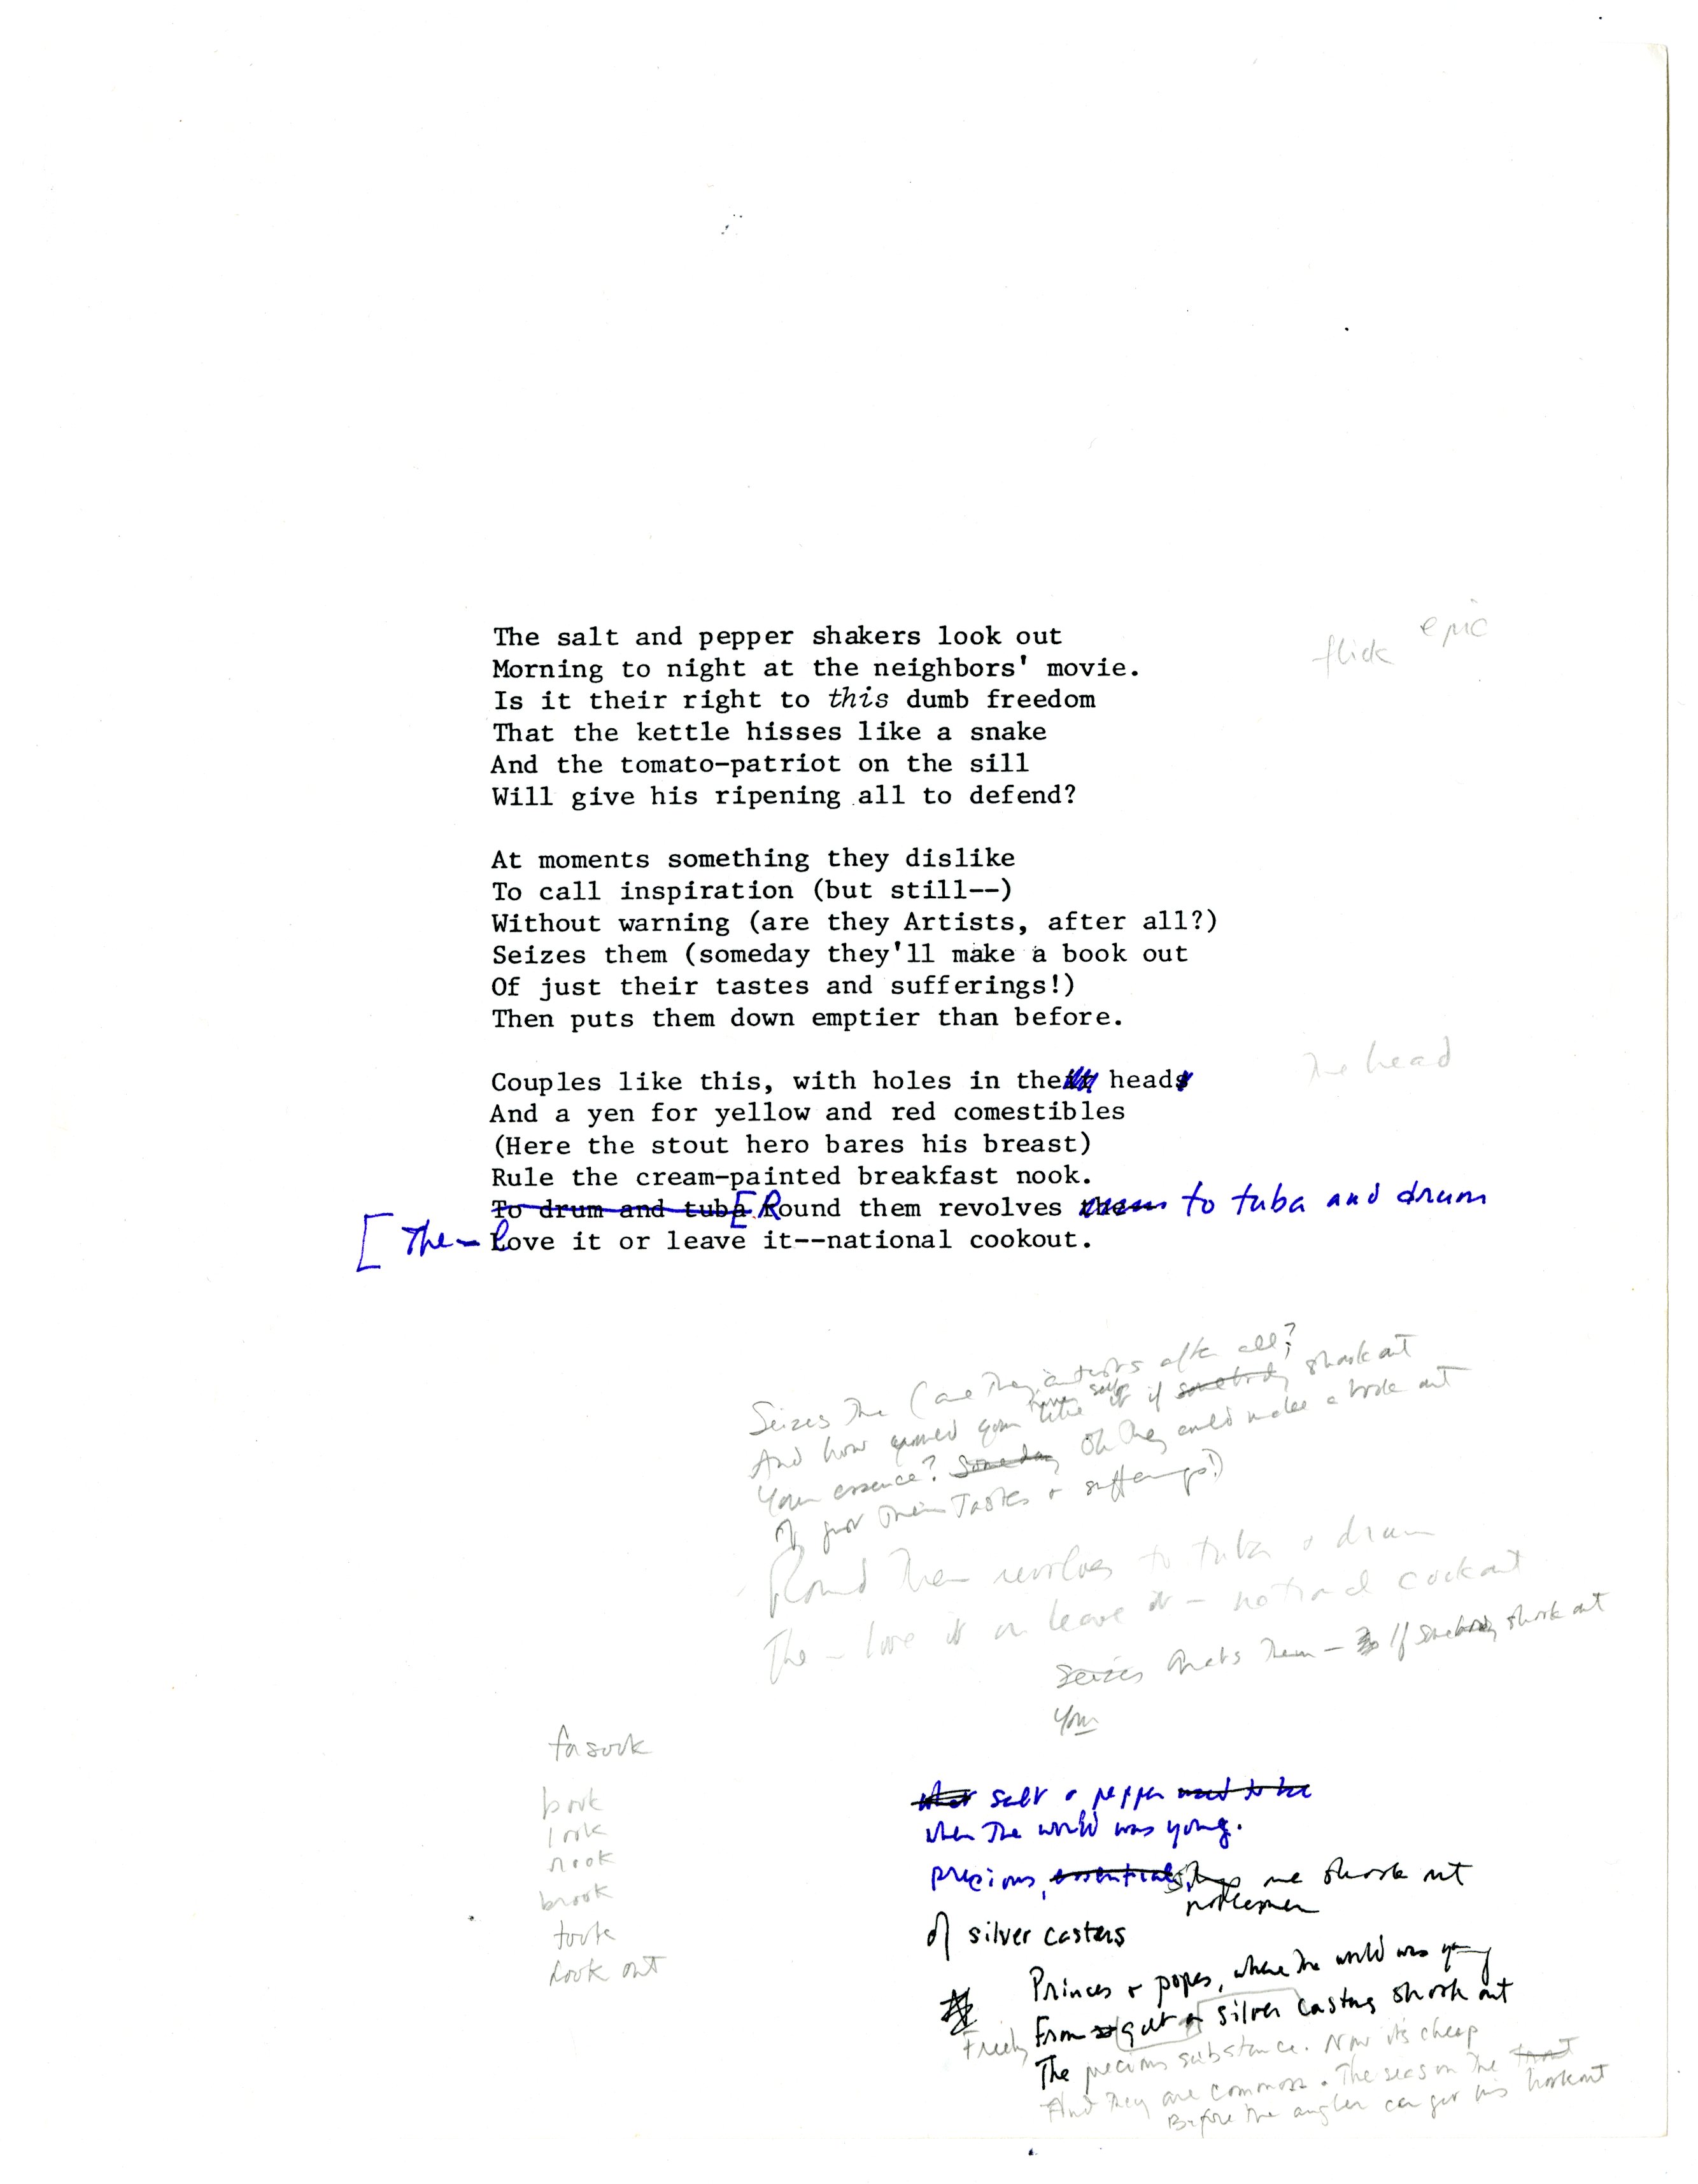 epic
flick
The salt and pepper shakers look out
Morning to night at the neighbors' movie.
Is it their right to this dumb freedom
That the kettle hisses like a snake
And the tomato-patriot on the sill
Will give his ripening all to defend?
At moments something they dislike
To call inspiration (but still--)
Without warning (are they Artists, after all?)
Seizes them (someday they'll make a book out
Of just their tastes and sufferings!)
Then puts them down emptier than before.
The head
Couples like this, with holes in their heads
And a yen for yellow and red comestibles
(Here the stout hero bares his breast)
Rule the cream-painted breakfast nook.
To drum and tuba [Round them revolves to tuba and drum
[The - Love it or leave it--national cookout.
Seizes the (are they artists after all?
And how would you like it if somebody shook out
Your essence? Someday Oh they could make a book out
Of just their tastes & sufferings!)
Round them revolves to tuba & drum
The - love it or leave it - national cookout
Seizes them - If somebody shook out
Your
forsook
book
look
nook
brook
took
look out
salt & pepper used to be
when the world was young.
precious, essential, shook out
noblemen
of silver casters
Princes & popes, when the world was young
From silver casters shook out
Freely
The precious substance. Now it's cheap
And they are common. The season the trout
Before the angler can get his hook out